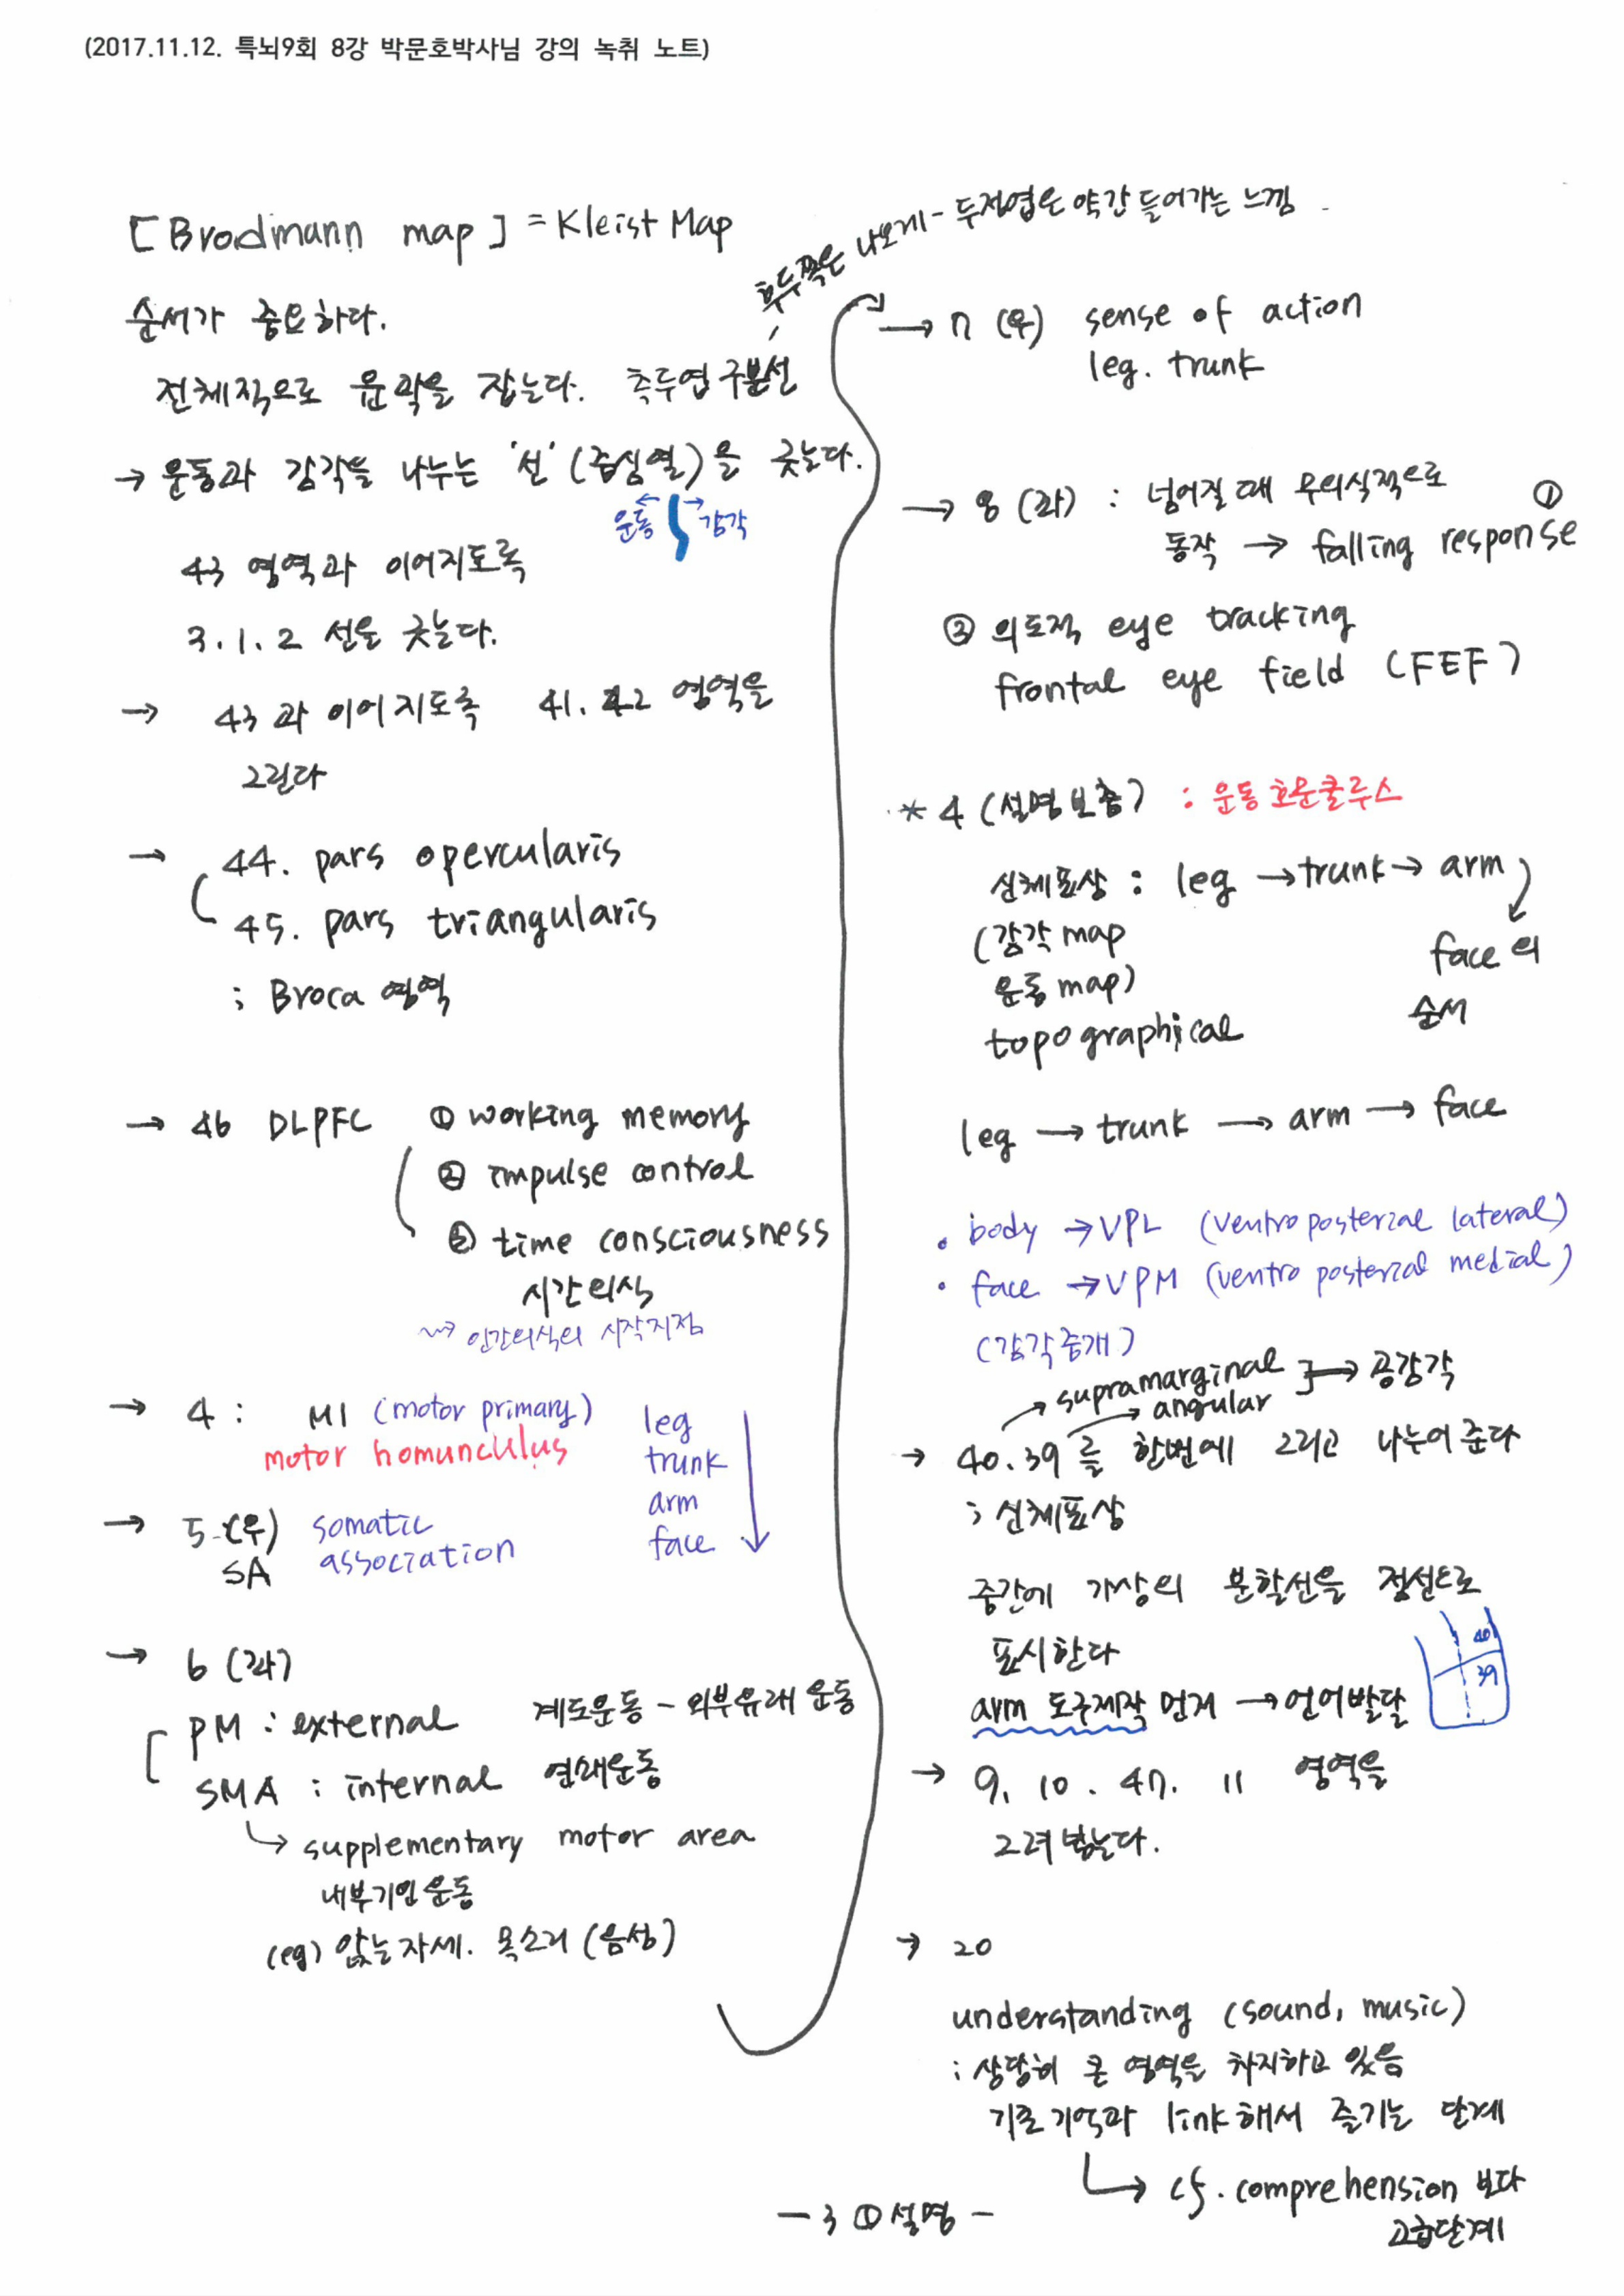 (2017.11.12. 특뇌9회 8강 박문호박사님 강의 녹취 노트)
[Brodmann map] = Kleist Map
순서가 중요하다.
전체적으로 윤곽을 잡는다. 측두엽 구분선
후두쪽은 나오게 - 두정엽은 약간 들어가는 느낌
→ 운동과 감각을 나누는 '선' (중심열)을 긋는다.
운동 ← → 감각
43 영역과 이어지도록
3.1.2 선을 긋는다.
→ 43과 이어지도록 41.42 영역을
그린다
→ 44. pars opercularis
45. pars triangularis
; Broca 영역
→ 46 DLPFC ① working memory
② impulse control
③ time consciousness
시간의식
⇝ 인간의식의 시작지점
→ 4 : M1 (motor primary)
motor homunculus
leg
trunk
arm
face
→ 5 (우) somatic
SA association
→ 6 (좌)
PM : external 계도운동 - 외부유래 운동
SMA : internal 연쇄운동
↳ supplementary motor area
내부기인 운동
(eg) 앉는자세. 목소리 (음성)
→ 7 (우) sense of action
leg. trunk
→ 8 (좌) : 넘어질 때 무의식적으로 ①
동작 → falling response
② 의도적 eye tracking
frontal eye field (FEF)
* 4 (설명보충) : 운동호문쿨루스
신체표상 : leg → trunk → arm
(감각 map
face 의
운동 map)
순서
topographical
leg → trunk → arm → face
• body → VPL (ventro posterial lateral)
• face → VPM (ventro posterial medial)
(감각중개)
supramarginal
angular ] → 공감각
→ 40.39 를 한번에 그리고 나누어 준다
; 신체표상
중간에 가상의 분할선을 점선으로
표시한다
40
39
arm 도구제작 먼저 → 언어발달
→ 9. 10. 47. 11 영역을
그려 넣는다.
→ 20
understanding (sound, music)
: 상당히 큰 영역을 차지하고 있음
기존기억과 link해서 즐기는 단계
↳ cf. comprehension 보다
고급단계
- 3 ① 설명 -